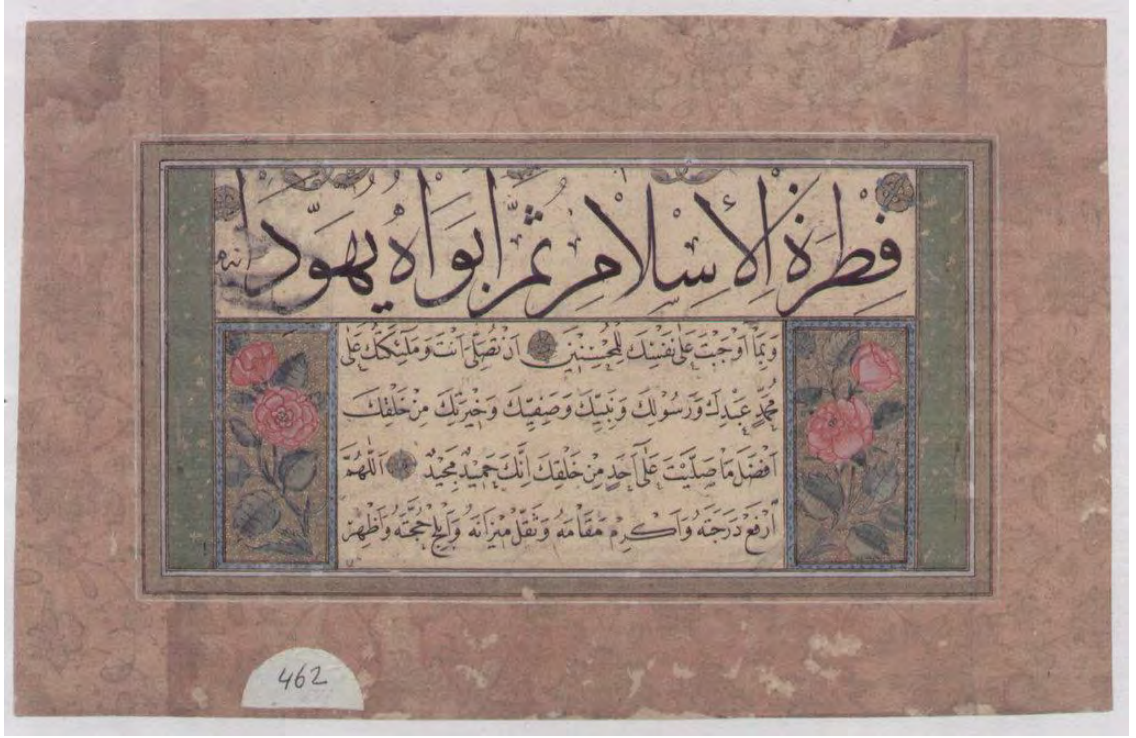 فِطْرَةُ الْإِسْلَامِ ثُمَّ أَبَوَاهُ يُهَوِّدَانِهِ
وَبِمَا اَوْجَبْتَ عَلٰى نَفْسِكَ لِلْمُحْسِنِينَ اَنْ تُصَلِّيَ اَنْتَ وَمَلٰئِكَتُكَ عَلٰى
مُحَمَّدٍ عَبْدِكَ وَرَسُولِكَ وَنَبِيِّكَ وَصَفِيِّكَ وَخِيَرَتِكَ مِنْ خَلْقِكَ
اَفْضَلَ مَا صَلَّيْتَ عَلٰى اَحَدٍ مِنْ خَلْقِكَ اِنَّكَ حَمِيدٌ مَجِيدٌ اَللّٰهُمَّ
ارْفَعْ دَرَجَتَهُ وَاَكْرِمْ مَقَامَهُ وَثَقِّلْ مِيزَانَهُ وَاَبْلِجْ حُجَّتَهُ وَاَظْهِرْ
462